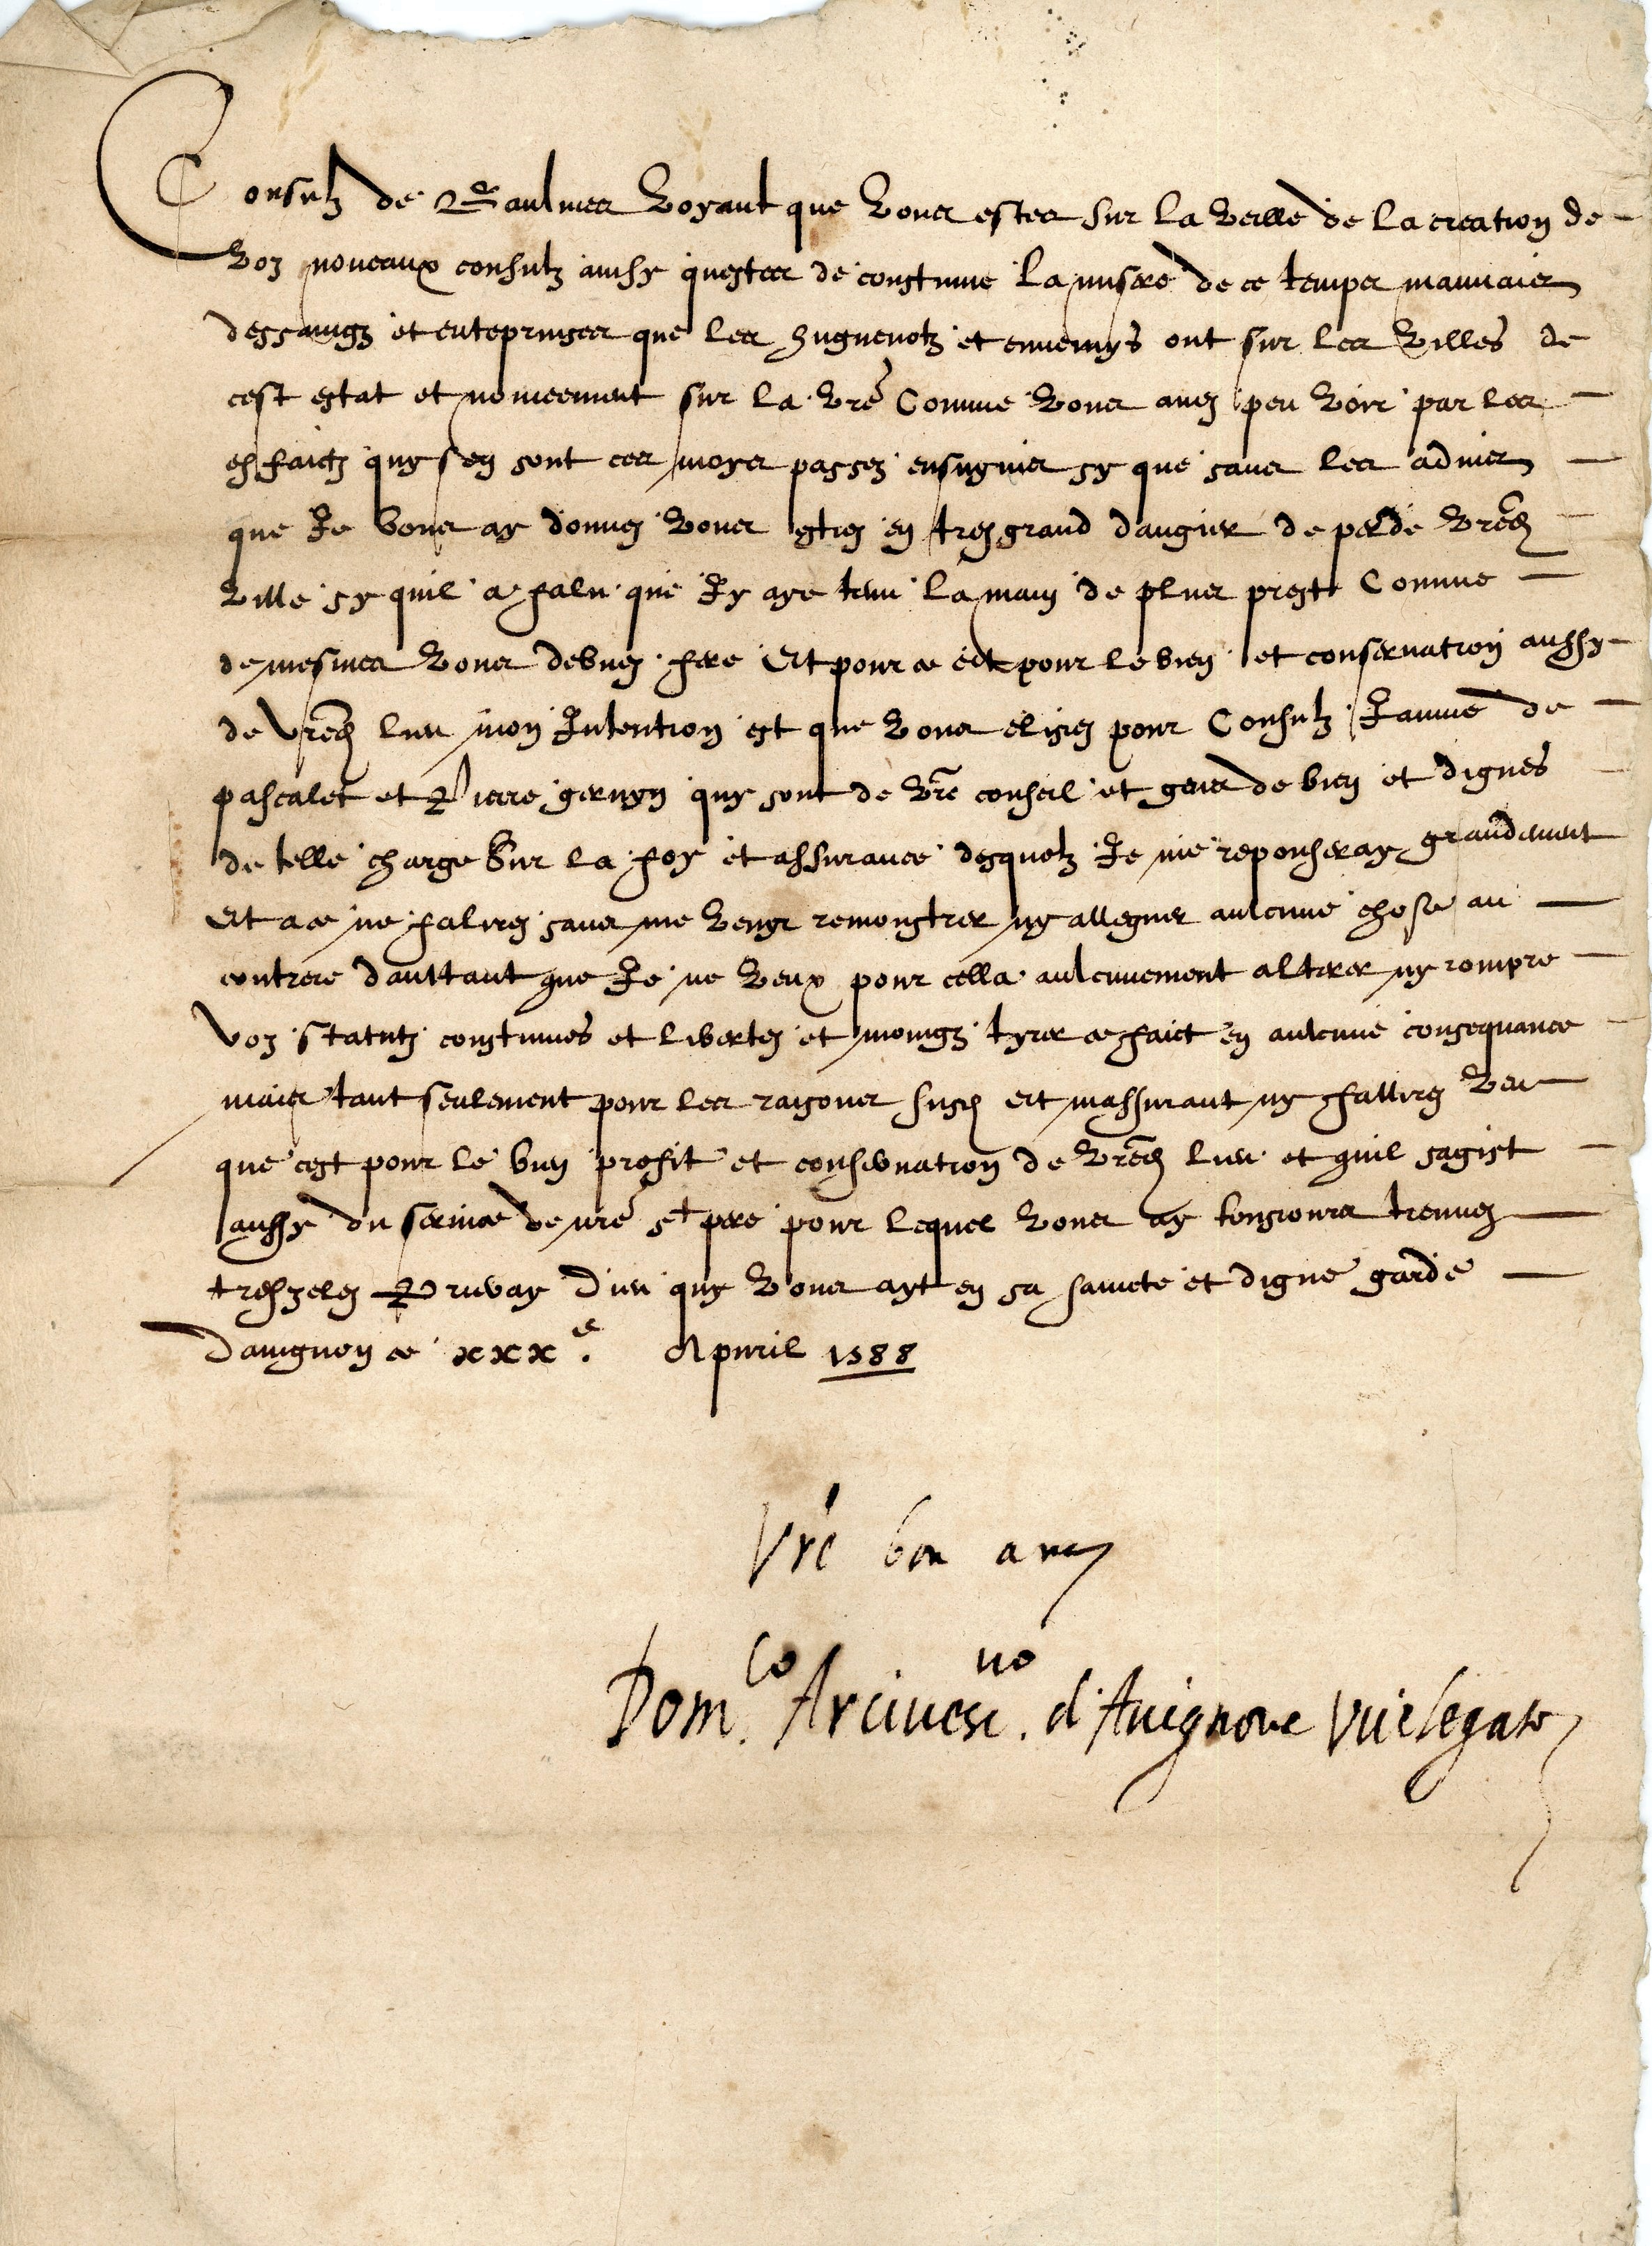 Consulz de Baulmes Voyant que Vous estes sur la Veille de la creation de
Voz noveaux consulz ainsy questes de coustume la misere de ce temps mauvais
dessaingz et entreprinses que les huguenotz et ennemys ont sur les Villes de
cest estat et nomeement sur la Vre Comme Vous avez peu Voir par les
effaictz quy sen sont ces moys passez ensuyvis sy que sans les advis
que Je Vous ay donnez Vous estiez en trez grand dangier de perde Vred
Ville sy quil a falu que Jy aye tenu la main de plus prest Comme
de mesmes Vous debvez fere Et pour ce et pour le bien et conservation aussy
de Vred lieu mon Intention est que Vous elisiez pour Consulz Jaume de
pascalet et Pierre gernyn quy sont de Vre conseil et gens de bien et dignes
de telle charge Sur la foy et assurance desquelz Je me reponseray grandement
Et a ce ne falirez sans me Venyr remonstrer ny alleguer aulcune chose au
contrere daulttant que Je ne Veux pour cella aulcunement alterer ny rompre
Voz statutz coustumes et libertez et moingz tyrer ce faict en aulcune consequance
mais tant seulement pour les raisons susd et massurant ny fallirez Veu
que cest pour le bien profit et conservation de Vred lieu et quil sagist
aussy du service de nre St pere pour lequel Vous ay tousjours treuvez
treszelez Priway Dieu quy Vous ayt en sa saincte et digne garde
Davignon ce xxxe. Apvril 1588
Vre bon amy
Domco. Arcivescno. d'Avignone Vicelegato